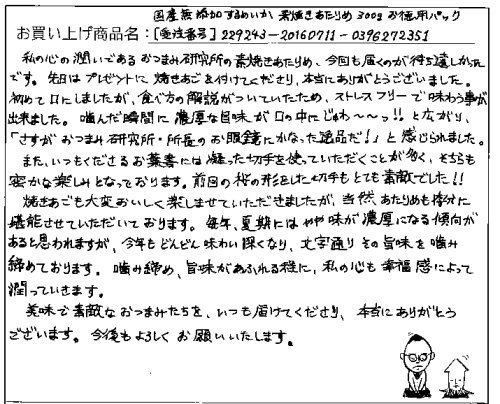 国産無添加するめいか 素焼きあたりめ 300g お徳用パック
お買い上げ商品名：[受注番号] 229243-20160711-0396272351
私の心の潤いであるおつまみ研究所の素焼きあたりめ、今回も届くのが待ち遠しかった
です。先日はプレゼントに焼きあごを付けてくださり、本当にありがとうございました。
初めて口にしましたが、食べ方の解説がついていたため、ストレスフリーで味わう事が
出来ました。噛んだ瞬間に濃厚な旨味が口の中にじゅわ〜〜っ!!と広がり、
「さすがおつまみ研究所・所長のお眼鏡にかなった逸品だ!」と感じられました。
また、いつもくださるお葉書には凝った切手を使っていただくことが多く、そちらも
密かな楽しみとなっております。前回の桜の形をした切手もとても素敵でした!!
焼きあごも大変おいしく楽しませていただきましたが、当然、あたりめも存分に
堪能させていただいております。毎年、夏期にはやや味が濃厚になる傾向が
あると思われますが、今年もどんどん味わい深くなり、文字通りその旨味を噛み
締めております。噛み締め、旨味があふれる程に、私の心も幸福感によって
潤っていきます。
美味で素敵なおつまみたちを、いつも届けてくださり、本当にありがとう
ございます。今後もよろしくお願いいたします。